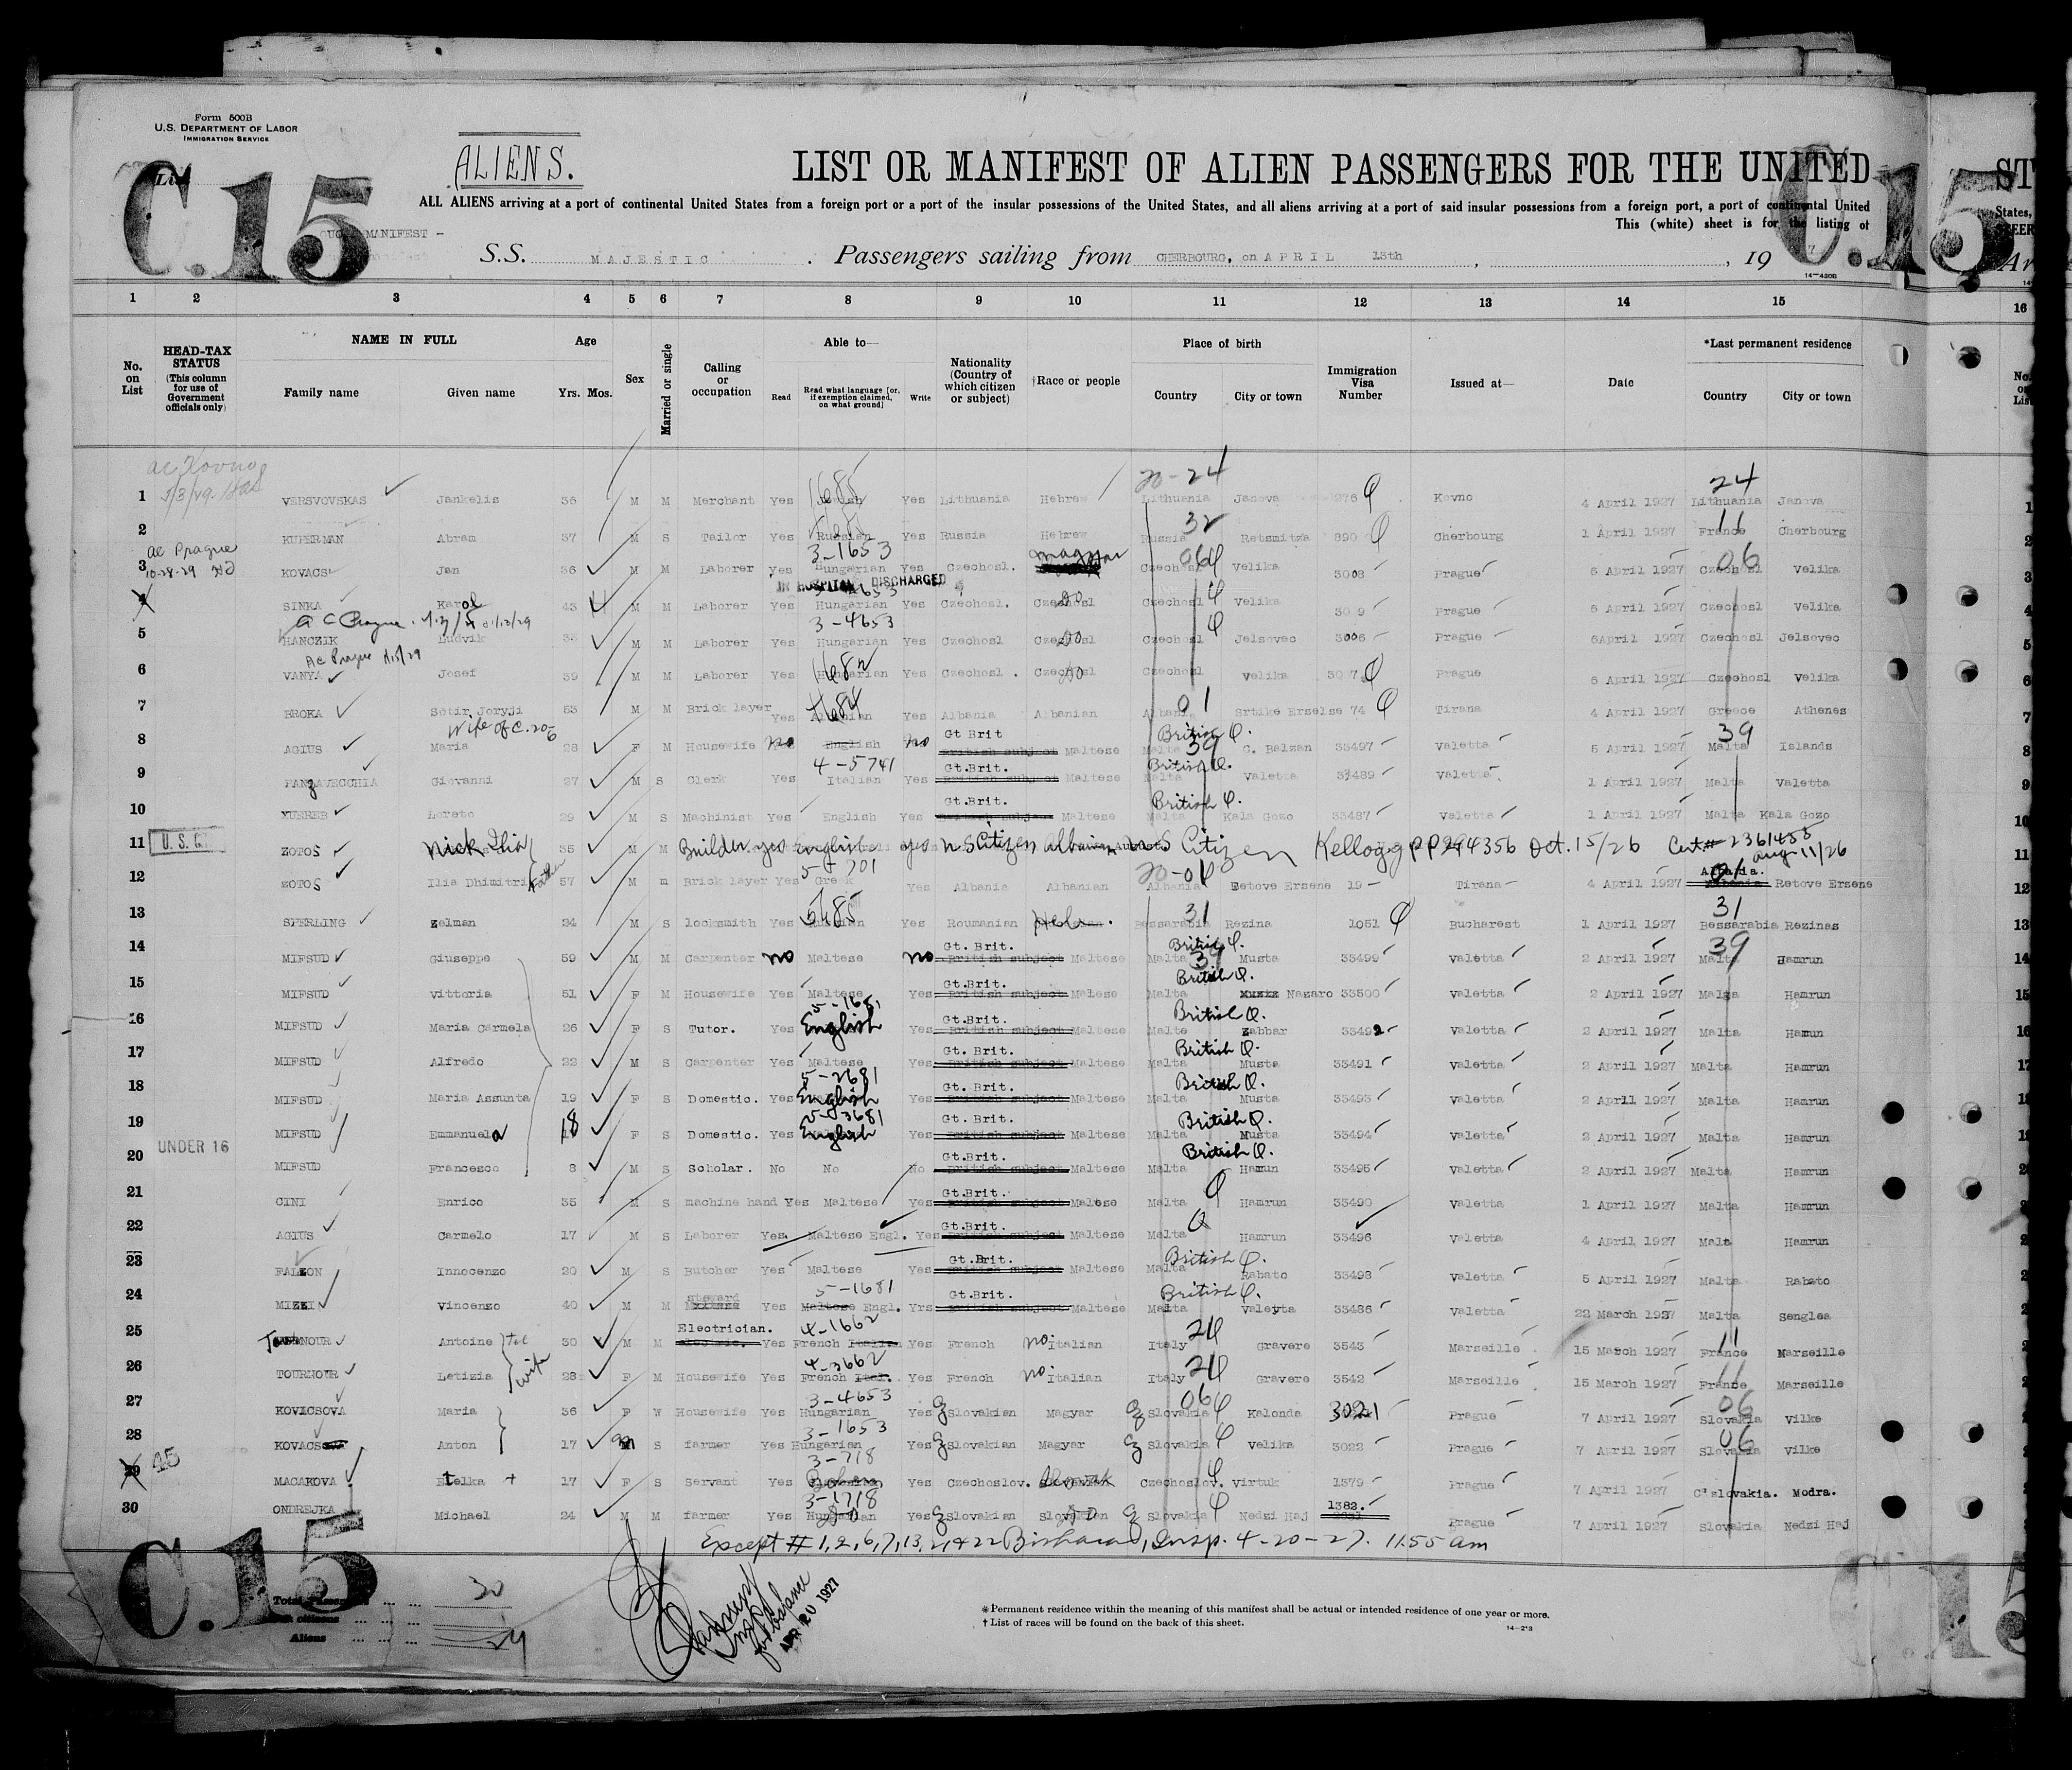 Form 500B
U.S. DEPARTMENT OF LABOR
IMMIGRATION SERVICE
C.15
ALIENS.
LIST OR MANIFEST OF ALIEN PASSENGERS FOR THE UNITED
ALL ALIENS arriving at a port of continental United States from a foreign port or a port of the insular possessions of the United States, and all aliens arriving at a port of said insular possessions from a foreign port, a port of continental United
This (white) sheet is for the listing of
MANIFEST -
S.S. MAJESTIC. Passengers sailing from CHERBOURG, on APRIL 13th, 19 7
1 2 3 4 5 6 7 8 9 10 11 12 13 14 15 16
No. on List
HEAD-TAX STATUS (This column for use of Government officials only)
NAME IN FULL Family name Given name
Age Yrs. Mos.
Sex
Married or single
Calling or occupation
Able to— Read Read what language [or, if exemption claimed, on what ground] Write
Nationality (Country of which citizen or subject)
†Race or people
Place of birth Country City or town
Immigration Visa Number
Issued at—
Date
*Last permanent residence Country City or town
20-24 24
1 VERSVOVSKAS Jankelis 36 M M Merchant Yes Yes Lithuania Hebrew Lithuania Janova 276 Kovno 4 April 1927 Lithuania Janova
32 11
2 KUPERMAN Abram 37 M S Tailor Yes Russian Yes Russia Hebrew Russia Retsmitza 890 Cherbourg 1 April 1927 France Cherbourg
ac Prague 10-28-29 3-1653 Magyar 06 06
3 KOVACS Jan 36 M M Laborer Yes Hungarian Yes Czechosl. Czechosl Velika 3008 Prague 6 April 1927 Czechosl Velika
IN HOSPITAL DISCHARGED
4 SINKA Karol 43 M M Laborer Yes Hungarian Yes Czechosl. Czechosl Czechosl Velika 3009 Prague 6 April 1927 Czechosl Velika
3-4653
5 HANCZIK Ludvik 33 M M Laborer Yes Hungarian Yes Czechosl Czechosl Czechosl Jelsovec 3006 Prague 6April 1927 Czechosl Jelsovec
6 VANYA Josef 39 M M Laborer Yes Hungarian Yes Czechosl. Czechosl Czechosl Velika 3007 Prague 6 April 1927 Czechosl Velika
01
7 BROKA Sotir Joryji 53 M M Brick layer Yes Albanian Yes Albania Albanian Albania Srtike Erselse 74 Tirana 4 April 1927 Greece Athenes
Wife of C.20-6 Gt Brit British 39
8 AGIUS Maria 28 F M Housewife no English no British subject Maltese Malta C. Balzan 33497 Valetta 5 April 1927 Malta Islands
4-5741 Gt.Brit. British
9 PANZAVECCHIA Giovanni 27 M S Clerk Yes Italian Yes British subject Maltese Malta Valetta 33489 Valetta 1 April 1927 Malta Valetta
Gt.Brit. British
10 XUEREB Loreto 29 M S Machinist Yes English Yes British subjec Maltese Malta Kala Gozo 33487 Valetta 1 April 1927 Malta Kala Gozo
11 ZOTOS Nick Ilia 35 M M Builder yes English yes US Citizen Albanian US Citizen Kellogg PP294356 Oct. 15/26 Cert# 2361455 Aug 11/26
12 ZOTOS Ilia Dhimitri Father 57 M m Brick layer Yes Greek Yes Albania Albanian Albania Retove Ersene 19 Tirana 4 April 1927 Albania. Retove Ersene
31 31
13 SPERLING Zelman 24 M S locksmith Yes Yes Roumanian Hebr. Bessarabia Rezina 1051 Bucharest 1 April 1927 Bessarabia Rezinas
Gt. Brit. British 39
14 MIFSUD Giuseppe 59 M M Carpenter no Maltese no British subject Maltese Malta Musta 33499 Valetta 2 April 1927 Malta Hamrun
Gt.Brit. British
15 MIFSUD Vittoria 51 F M Housewife Yes Maltese Yes British subject Maltese Malta Nazaro 33500 Valetta 2 April 1927 Malta Hamrun
5-1681 Gt.Brit. British
16 MIFSUD Maria Carmela 26 F S Tutor. Yes English Yes British subject Maltese Malta Zabbar 33492 Valetta 2 April 1927 Malta Hamrun
Gt. Brit. British
17 MIFSUD Alfredo 22 M S Carpenter Yes Maltese Yes British subject Maltese Malta Musta 33491 Valetta 2 April 1927 Malta Hamrun
5-2681 Gt. Brit. British
18 MIFSUD Maria Assunta 19 F S Domestic. Yes English Yes British subject Maltese Malta Musta 33493 Valetta 2 April 1927 Malta Hamrun
5-3681 Gt. Brit. British
19 MIFSUD Emmanuela 18 F S Domestic. Yes English Yes British subject Maltese Malta Musta 33494 Valetta 2 April 1927 Malta Hamrun
UNDER 16 Gt.Brit. British
20 MIFSUD Francesco 8 M S Scholar. No No No British subject Maltese Malta Hamrun 33495 Valetta 2 April 1927 Malta Hamrun
Gt.Brit.
21 CINI Enrico 35 M S machine hand Yes Maltese Yes British subject Maltese Malta Hamrun 33490 Valetta 1 April 1927 Malta Hamrun
Gt.Brit.
22 AGIUS Carmelo 17 M S Laborer Yes. Maltese Engl. Yes British subject Maltese Malta Hamrun 33496 Valetta 4 April 1927 Malta Hamrun
Gt.Brit. British
23 FALZON Innocenzo 20 M S Butcher Yes Maltese Yes British subject Maltese Malta Rabato 33498 Valetta 5 April 1927 Malta Rabato
steward 5-1681 Gt.Brit. British
24 MIZZI Vincenzo 40 M M Yes Maltese Engl. Yrs British subject Maltese Malta Valeyta 33486 Valetta 22 March 1927 Malta Senglea
Electrician. 4-1662 24 11
25 TOURNOUR Antoine 30 M M Yes French Italian Yes French no. Italian Italy Gravere 3543 Marseille 15 March 1927 France Marseille
4-3662 24 11
26 TOURNOUR Letizia wife 28 F M Housewife Yes French Ital. Yes French no Italian Italy Gravere 3542 Marseille 15 March 1927 France Marseille
3-4653 06 06
27 KOVACSOVA Maria 36 F W Housewife Yes Hungarian Yes Cz Slovakian Magyar Cz Slovakia Kalonda 3021 Prague 7 April 1927 Slovakia Vilke
3-1653 06
28 KOVACSOVA Anton 17 M S farmer Yes Hungarian Yes Cz Slovakian Magyar Cz Slovakia Velika 3022 Prague 7 April 1927 Slovakia Vilke
3-718
29 MACAKOVA Etelka 17 F S Servant Yes Yes Czechoslov. Slovak Czechoslov. Virtuk 1379 Prague 7 April 1927 C'slovakia. Modra.
3-1718 1382.
30 ONDREJKA Michael 24 M M farmer Yes Hungarian Yes Cz Slovakian Slovakian Cz Slovakia Nedzi Haj Prague 7 April 1927 Slovakia Nedzi Haj
Except # 1, 2, 6, 7, 13, 21, & 22 Insp. 4-20-27. 11.55 am
C.15
Total Passengers ... ... 30
citizens ... ...
Aliens ... ... ...
APR 20 1927
*Permanent residence within the meaning of this manifest shall be actual or intended residence of one year or more.
†List of races will be found on the back of this sheet.